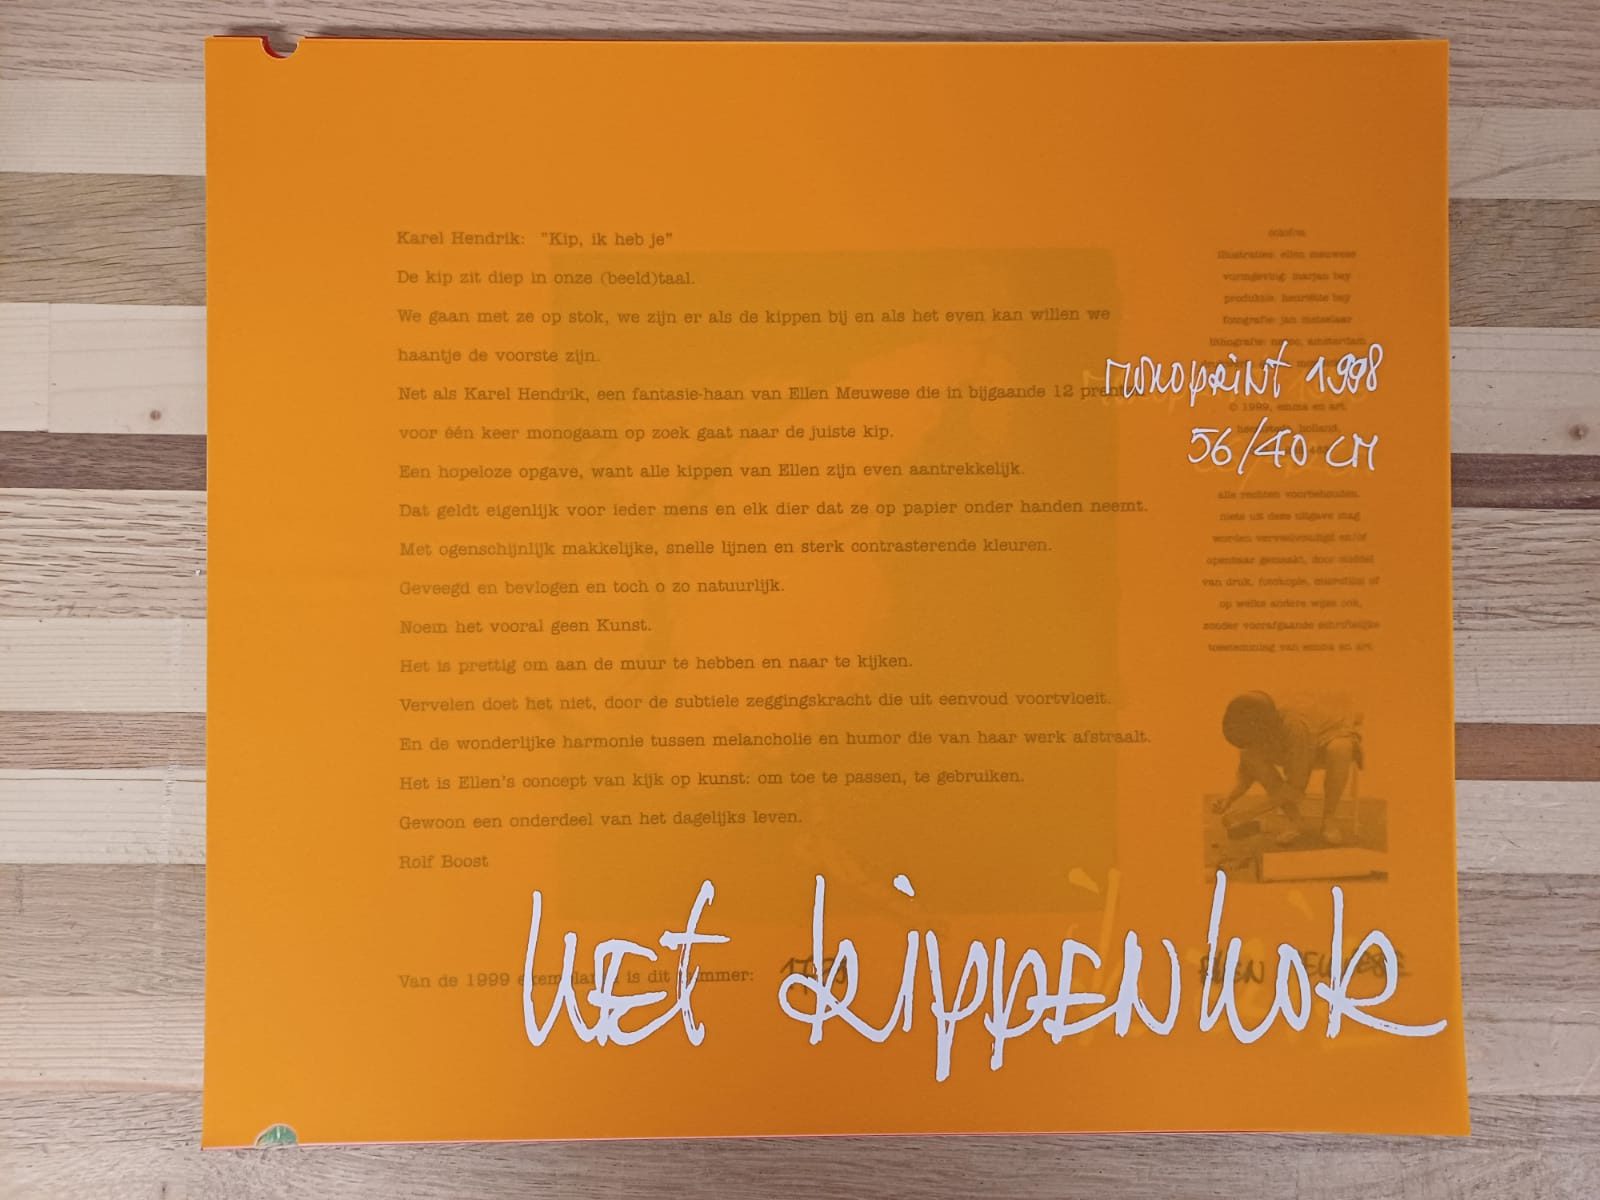 Karel Hendrik: "Kip, ik heb je"
De kip zit diep in onze (beeld)taal.
We gaan met ze op stok, we zijn er als de kippen bij en als het even kan willen we
haantje de voorste zijn.
Net als Karel Hendrik, een fantasie-haan van Ellen Meuwese die in bijgaande 12 prenten
voor één keer monogaam op zoek gaat naar de juiste kip.
Een hopeloze opgave, want alle kippen van Ellen zijn even aantrekkelijk.
Dat geldt eigenlijk voor ieder mens en elk dier dat ze op papier onder handen neemt.
Met ogenschijnlijk makkelijke, snelle lijnen en sterk contrasterende kleuren.
Geveegd en bevlogen en toch o zo natuurlijk.
Noem het vooral geen Kunst.
Het is prettig om aan de muur te hebben en naar te kijken.
Vervelen doet het niet, door de subtiele zeggingskracht die uit eenvoud voortvloeit.
En de wonderlijke harmonie tussen melancholie en humor die van haar werk afstraalt.
Het is Ellen's concept van kijk op kunst: om toe te passen, te gebruiken.
Gewoon een onderdeel van het dagelijks leven.
Rolf Boost
Van de 1999 exemplaren is dit nummer:
colofon
illustraties: ellen meuwese
vormgeving: marjan bey
produktie: henriëtte bey
fotografie: jan metselaar
amsterdam
monoprint 1998
© 1999, emma en art,
holland,
56/40 cm
alle rechten voorbehouden.
niets uit deze uitgave mag
worden verveelvoudigd en/of
openbaar gemaakt, door middel
van druk, fotokopie, microfilm of
op welke andere wijze ook,
zonder voorafgaande schriftelijke
toestemming van emma en art.
ELLEN MEUWESE
HET kippENhok